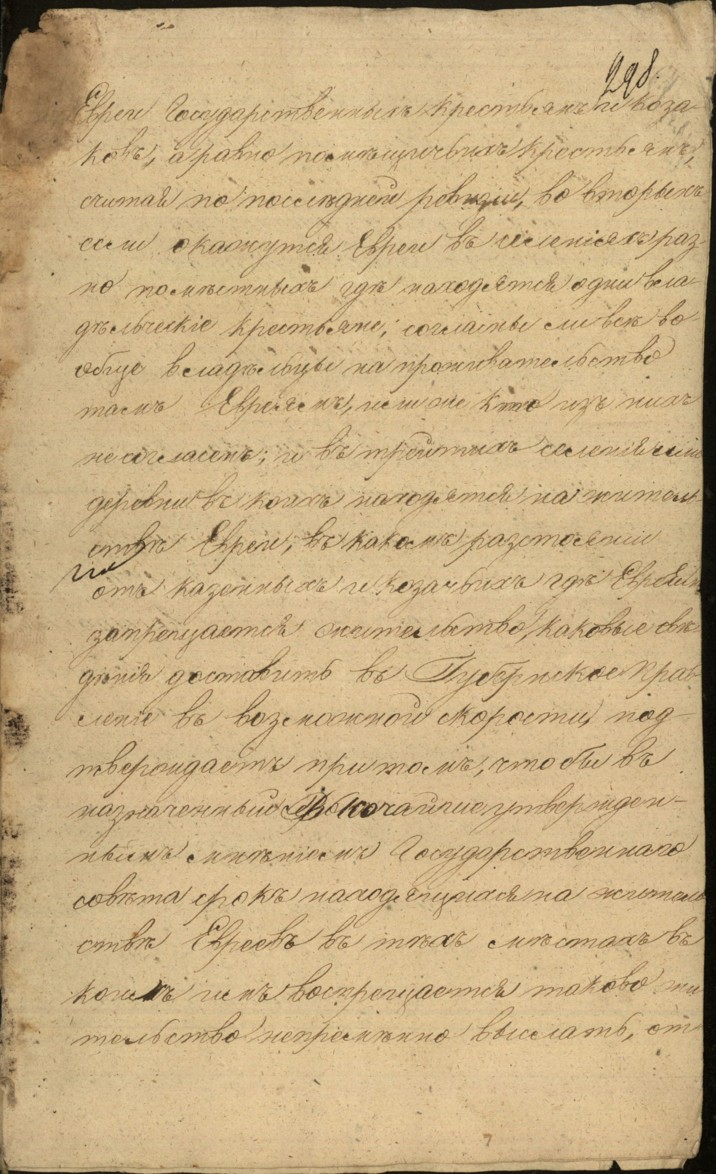 298.
Евреи Государственныхъ крестьянъ и коза-
ковъ, а равно помѣщичьихъ крестьянъ,
считая по послѣдней ревизіи, во вторыхъ
если окажутся Евреи въ селеніяхъ раз-
но помѣстныхъ гдѣ находятся одни вла-
дѣльческіе крестьяне; согласны ли всѣ во
обще владѣльцы на проживательство
тамъ Евреямъ, или же кто изъ нихъ
несогласенъ; и въ третьихъ селенія или
деревни въ коихъ находятся на житель
ствѣ Евреи, въ какомъ разстояніи
отъ казенныхъ и козачьихъ гдѣ Евреямъ
запрещается жительство, каковые свѣ
дѣнія доставить въ Губернское Прав
леніе въ возможной скорости, под-
тверждаетъ при томъ, чтобы въ
назначенный Высочайше утвержден-
нымъ мнѣніемъ Государственнаго
совѣта срокъ находящихся на житель
ствѣ Евреевъ въ тѣхъ мѣстахъ въ
коихъ имъ воспрещается таково жи
тельство непремѣнно выслать, от